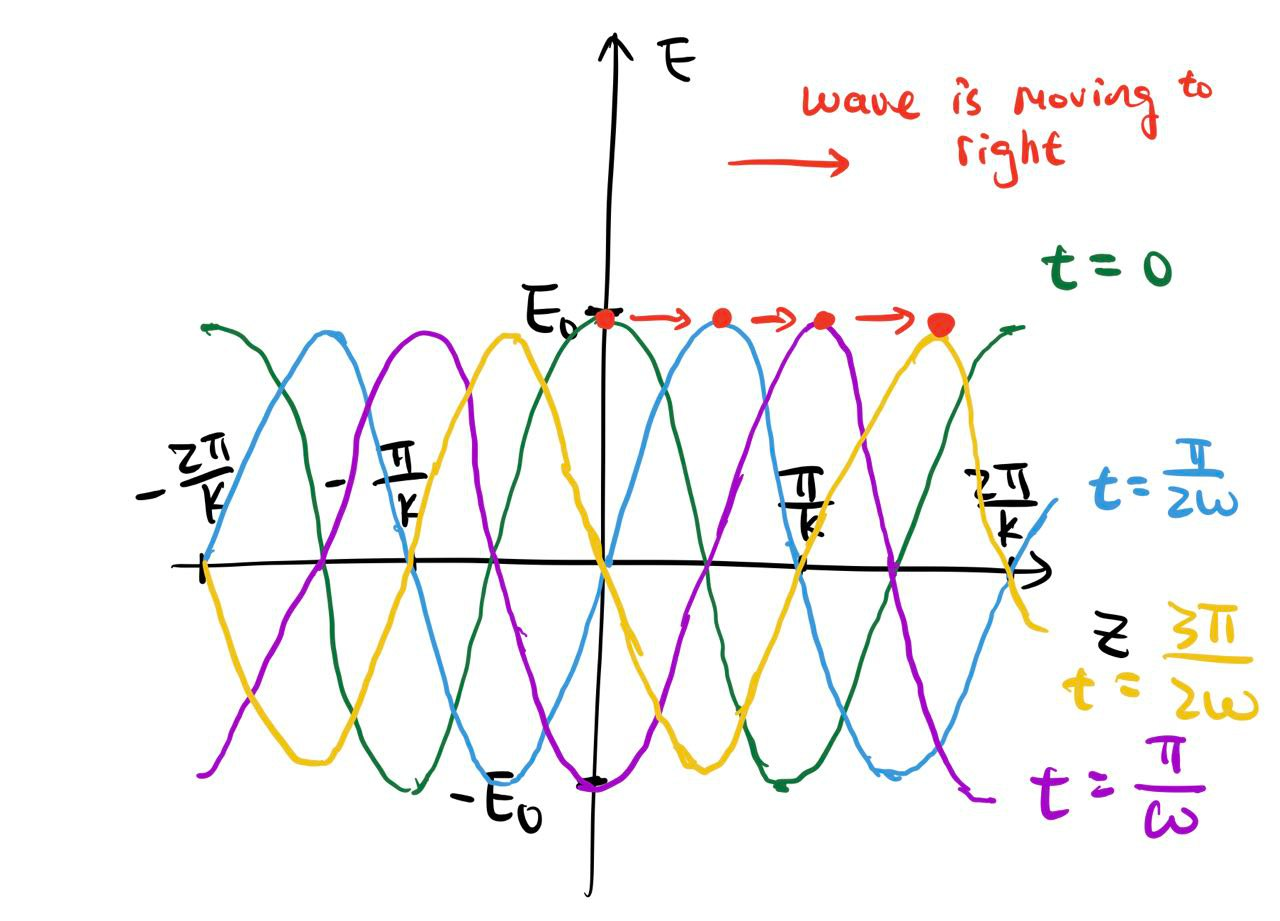 E
wave is moving to
right
t = 0
E₀
-2π/k
-π/k
π/k
2π/k
t = π/2ω
z
t = 3π/2ω
-E₀
t = π/ω